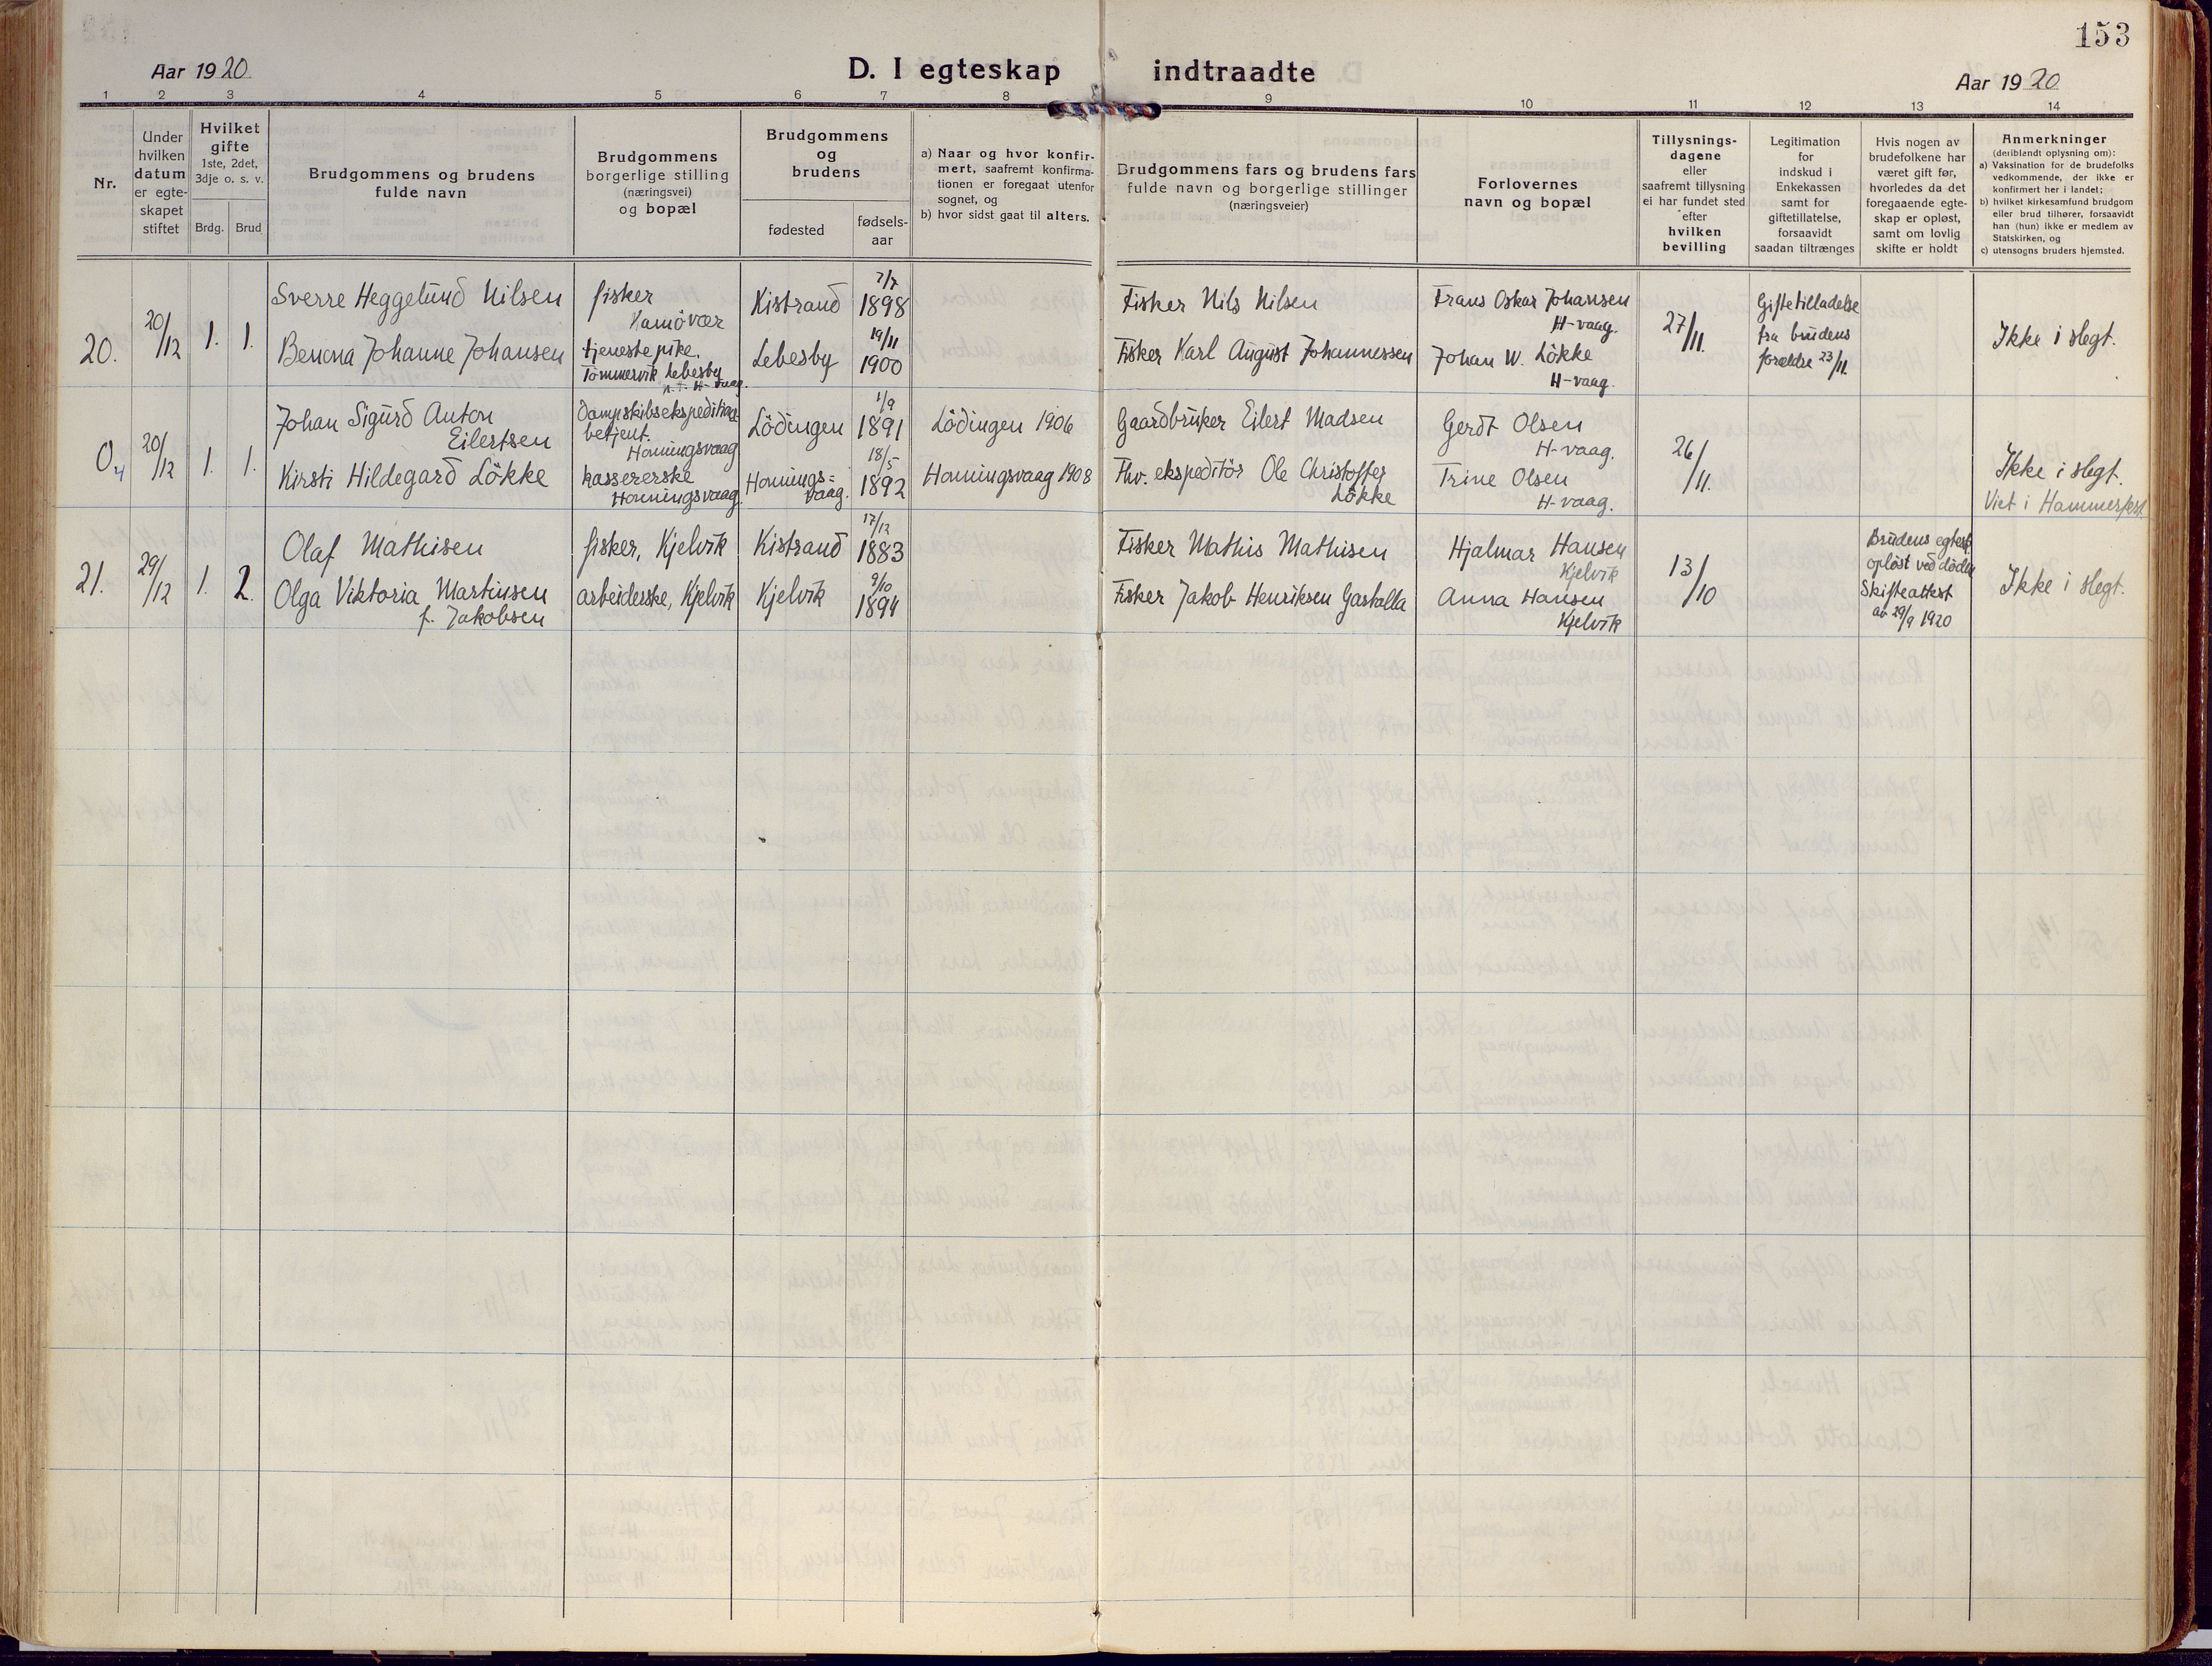 153
Aar 1920
D. I egteskap indtraadte
Aar 1920
1 2 3 4 5 6 7 8 9 10 11 12 13 14
Nr.
Under hvilken datum er egteskapet stiftet
Hvilket gifte
1ste, 2det, 3dje o. s. v.
Brdg. Brud
Brudgommens og brudens fulde navn
Brudgommens borgerlige stilling (næringsvei) og bopæl
Brudgommens og brudens
fødested fødsels-aar
a) Naar og hvor konfirmert, saafremt konfirmationen er foregaat utenfor sognet, og
b) hvor sidst gaat til alters.
Brudgommens fars og brudens fars fulde navn og borgerlige stillinger (næringsveier)
Forlovernes navn og bopæl
Tillysningsdagene eller saafremt tillysning ei har fundet sted efter hvilken bevilling
Legitimation for indskud i Enkekassen samt for giftetillatelse, forsaavidt saadan tiltrænges
Hvis nogen av brudefolkene har været gift før, hvorledes da det foregaaende egteskap er opløst, samt om lovlig skifte er holdt
Anmerkninger
(deriblandt oplysning om):
a) Vaksination for de brudefolks vedkommende, der ikke er konfirmert her i landet;
b) hvilket kirkesamfund brudgom eller brud tilhører, forsaavidt han (hun) ikke er medlem av Statskirken, og
c) utensogns bruders hjemsted.
20. 20/12 1. 1.
Sverre Heggelund Nilsen
fisker
Kamövær
Kistrand
7/7
1898
Fisker Nils Nilsen
Frans Oskar Johansen
H-vaag.
27/11.
Giftetilladelse
fra brudens
forældre 23/11.
Ikke i slegt.
Johanne Johansen
tjenestepike.
Tömmervik Lebesby
H-vaag.
Lebesby
19/11
1900
Fisker Karl August Johannessen
Johan W. Lökke
H-vaag.
O4 20/12 1. 1.
Johan Sigurd Anton
Eilertsen
Dampskibsekspeditions
betjent.
Honningsvaag
Lödingen
1/9
1891
Lödingen 1906
Gaardbruker Eilert Madsen
Gerdt Olsen
H-vaag.
26/11.
Ikke i slegt.
Viet i Hammerfest
Kirsti Hildegard Lökke
kassererske
Honningsvaag
Honnings=
vaag.
18/5
1892
Honningsvaag 1908
Fhv. ekspeditör Ole Christoffer
Lökke
Trine Olsen
H-vaag.
21. 29/12 1. 2.
Olaf Mathisen
fisker, Kjelvik
Kistrand
17/12
1883
Fisker Mathis Mathisen
Hjalmar Hansen
Kjelvik
13/10
Brudens egtesk.
oplöst ved döden
Skifteattest
av 29/9 1920
Ikke i slegt.
Olga Viktoria Martinsen
f. Jakobsen
arbeiderske, Kjelvik
Kjelvik
9/10
1894
Fisker Jakob Henriksen
Anna Hansen
Kjelvik